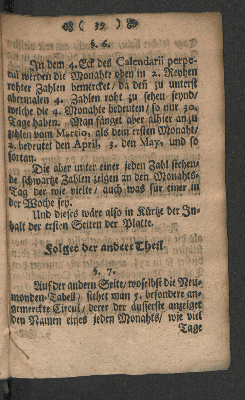 ( 19 )
§. 6.
In dem 4. Eck des Calendarii perpe-
tui werden die Monahte oben in 2. Reyhen
rohter Zahlen bemercket, da deñ zu unterst
abermalen 4. Zahlen roht zu sehen seynd,
welche die 4. Monahte bedeuten, so nur 30.
Tage haben. Man fänget aber alhier an zu
zehlen vom Martio, als dem ersten Monaht,
2. bedeutet den April, 3. den May, und so
fortan.
Die aber unter einer jeden Zahl stehen-
de schwartze Zahlen zeigen an den Monahts-
Tag der wie vielte, auch was für einer in
der Woche sey.
Und dieses wäre also in Kürtze der In-
halt der ersten Seiten der Platte.
Folget der andere Theil.
§. 7.
Auf der andern Seite, woselbst die Neu-
monden-Tabell, siehet man 5. besondere an-
gemerckte Circul, derer der äusserste anzeiget
den Namen eines jeden Monahts, wie viel
Tage